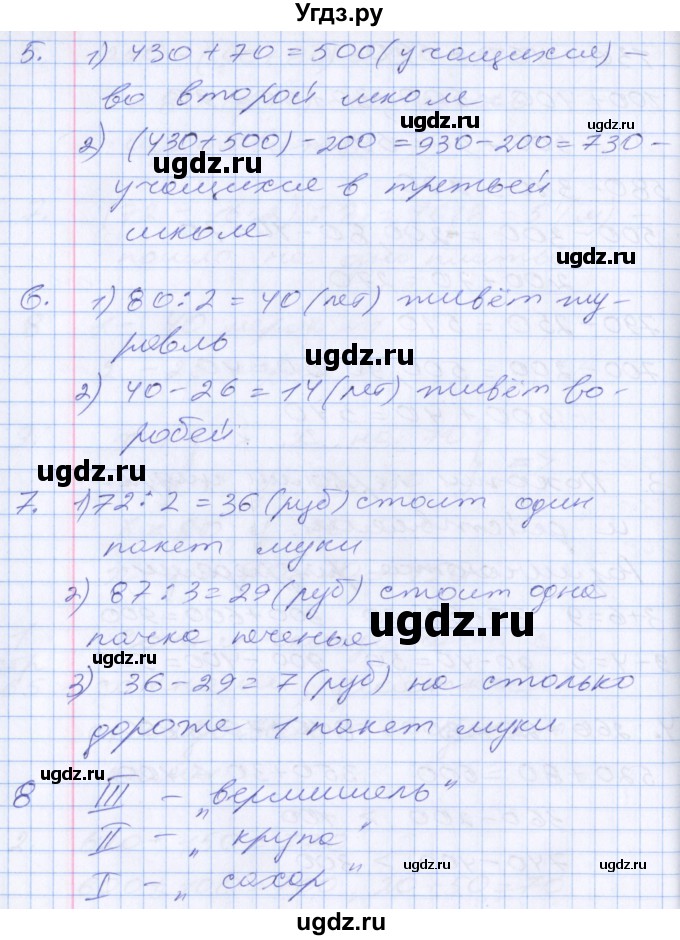 Угдз.ру
5. 1) 430 + 70 = 500 (учащихся) –
во второй школе
ugdz.ru
2) (430+500) - 200 = 930 - 200 = 730 –
ugdz.ru
учащихся в третьей
школе
ugdz.ru
6. 1) 80 : 2 = 40 (лет) живёт жу-
равль
ugdz.ru
2) 40 - 26 = 14 (лет) живёт во-
робей
ugdz.ru
7. 1) 72 : 2 = 36 (руб) стоит один
пакет муки
2) 87 : 3 = 29 (руб) стоит одна
ugdz.ru
пачка печенья
ugdz.ru
3) 36 - 29 = 7 (руб) на столько
дороже 1 пакет муки
ugdz.ru
8 III – „вермишель"
II – „крупа"
ugdz.ru
ugdz.ru
I – „сахар"
ugdz.ru